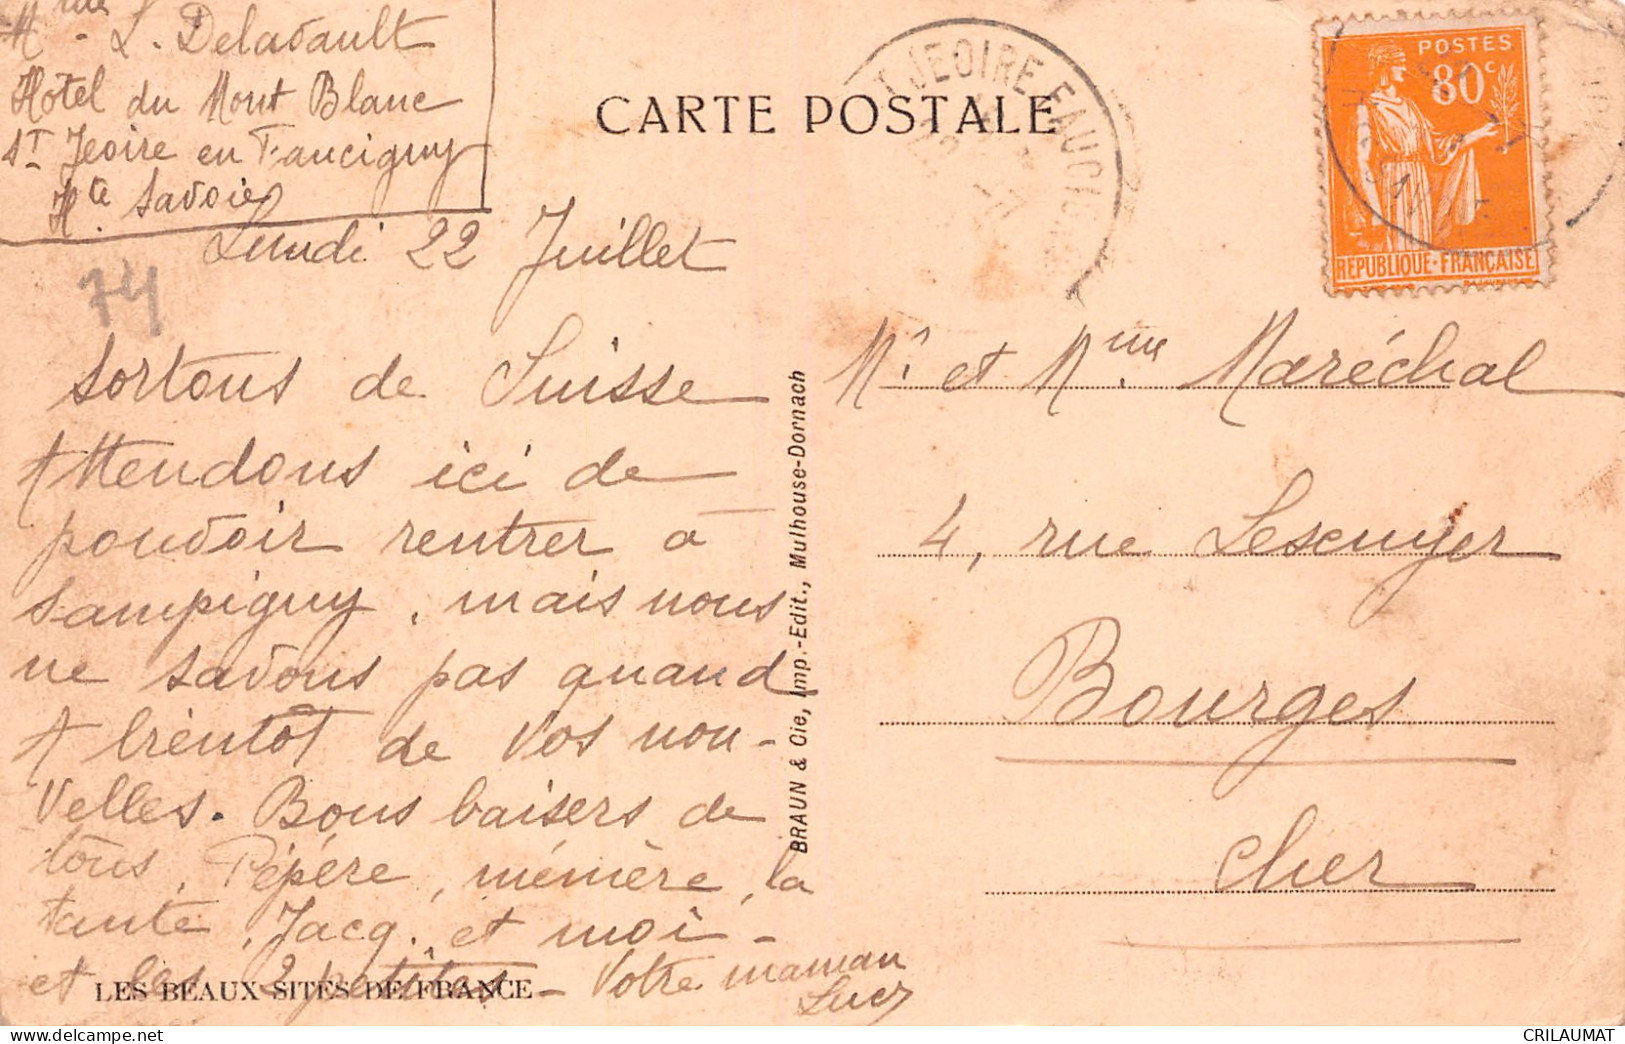 Mme L. Delavault
Hôtel du Mont Blanc
St Jeoire en Faucigny
Hte Savoie
CARTE POSTALE
T JEOIRE EN FAUCIGNY
POSTES
80c
REPUBLIQUE-FRANÇAISE
Lundi 22 Juillet
74
Sortons de Suisse
Attendons ici de
pouvoir rentrer à
Sampigny, mais nous
ne savons pas quand
A bientôt de vos nou-
velles. Bons baisers de
tous, Pépére, mémère, la
tante, Jacq., et moi -
et les 2 petites - Votre maman
Lucy
LES BEAUX SITES DE FRANCE
BRAUN & Cie, Imp.-Edit., Mulhouse-Dornach
Mr et Mme Maréchal
4, rue Lescuyer
Bourges
Cher
CRILAUMAT